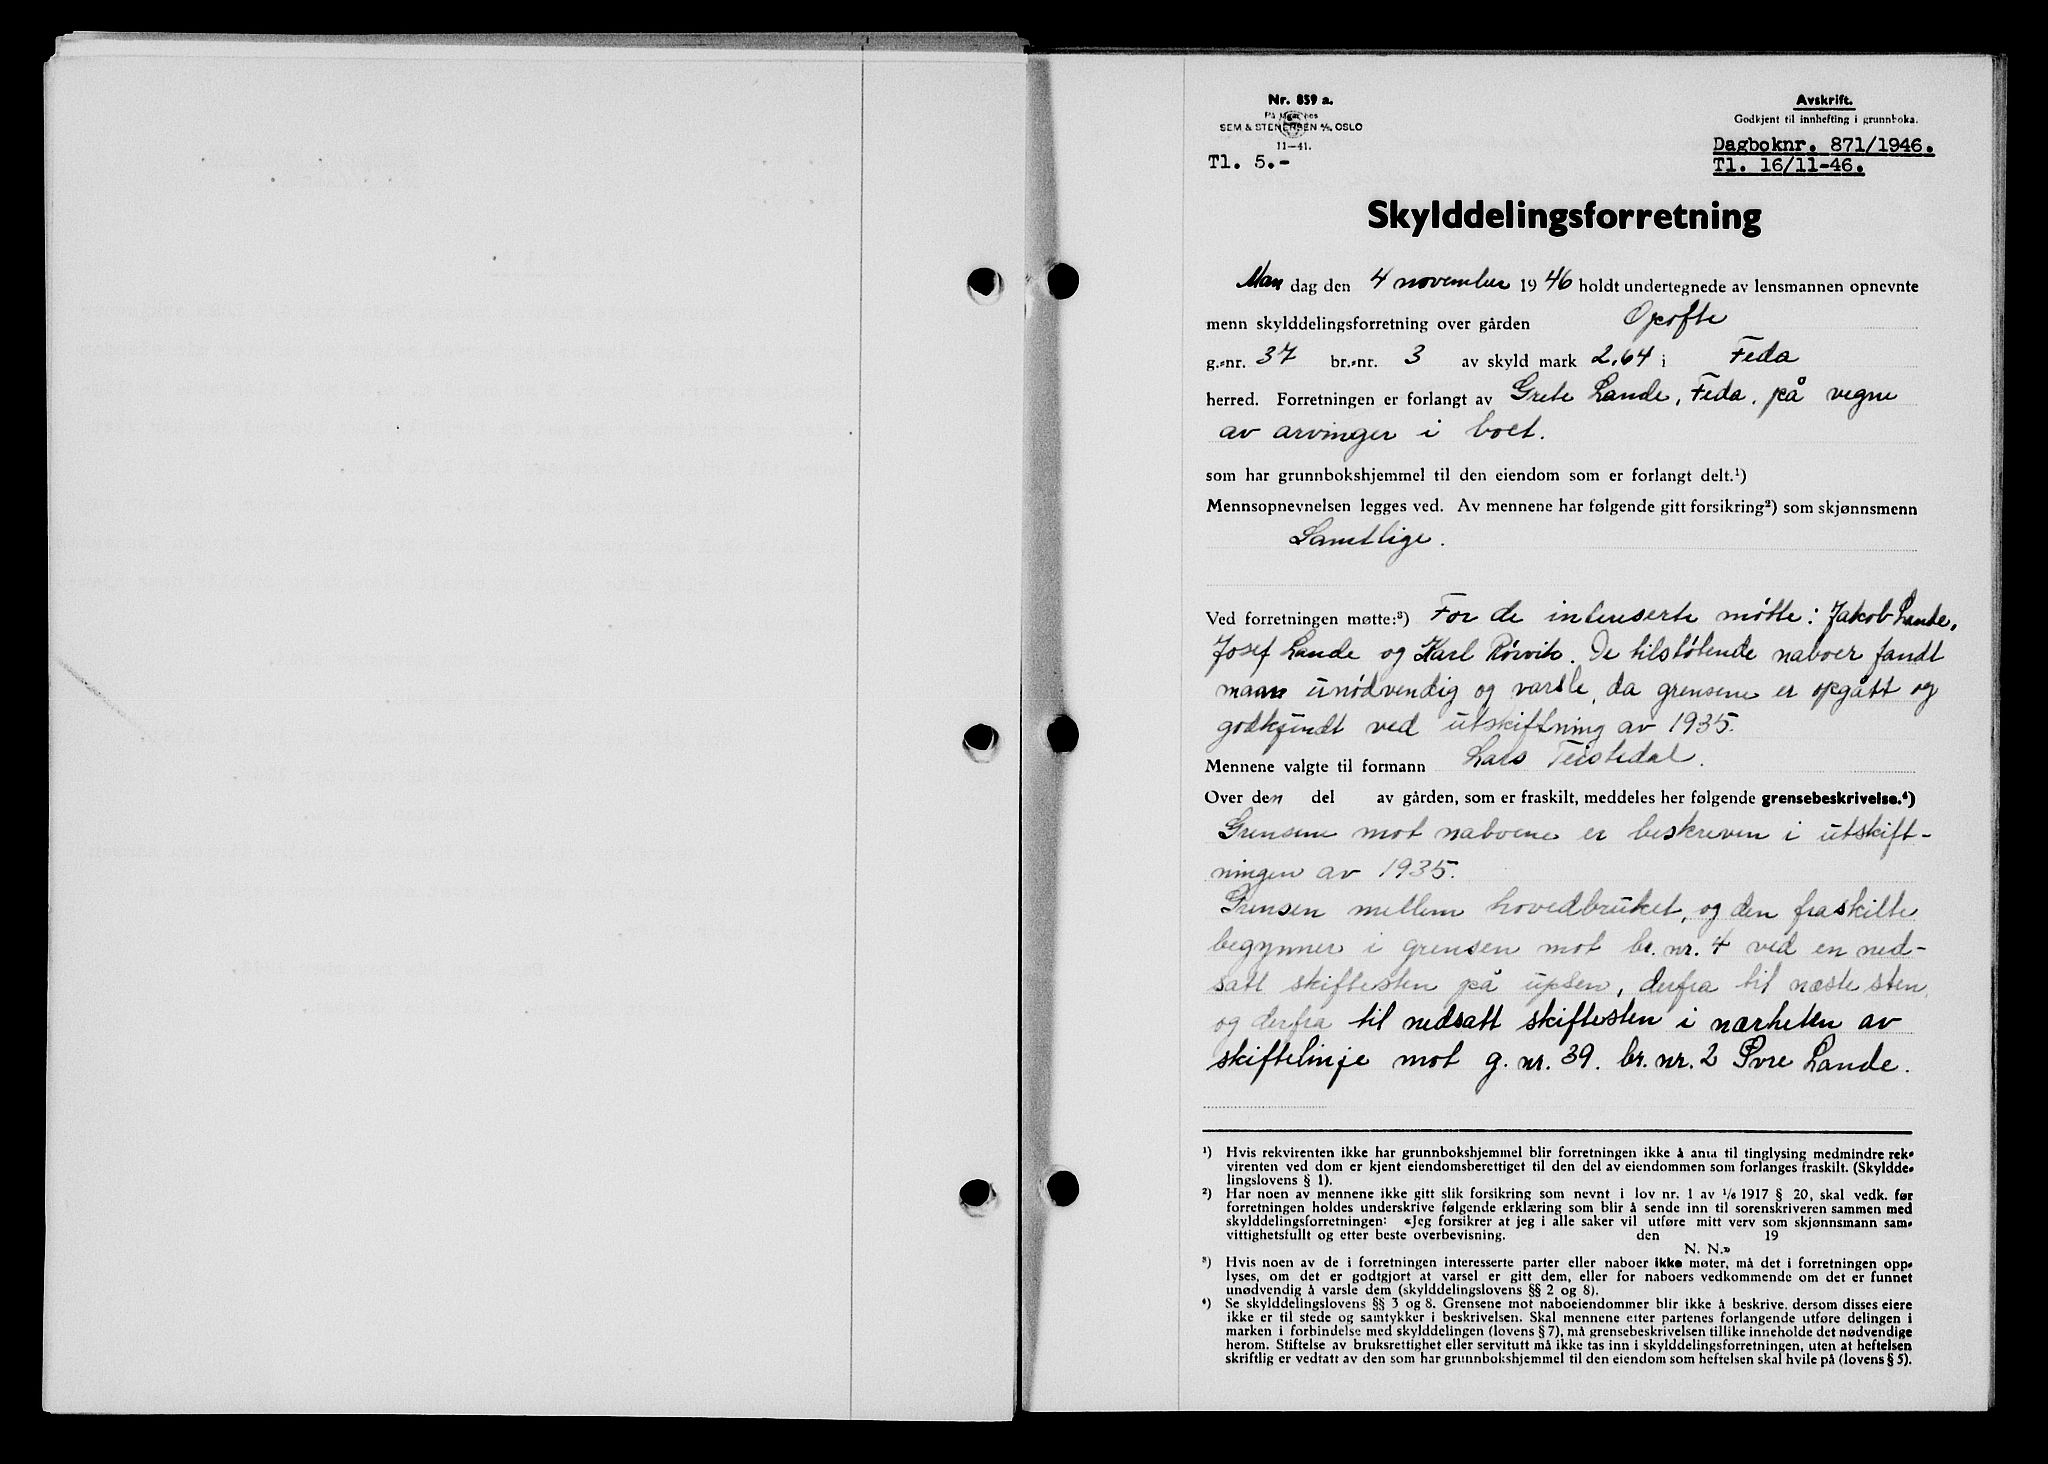 Nr. 859 a.
På lager hos
SEM & STENERSEN A/S, OSLO
11–41.
Tl. 5.-
Avskrift.
Godkjent til innhefting i grunnboka.
Dagboknr. 871/1946.
Tl. 16/11-46.
Skylddelingsforretning
Man dag den 4 november 1946 holdt undertegnede av lensmannen opnevnte
menn skylddelingsforretning over gården Opofte
g.-nr. 37 br.-nr. 3 av skyld mark 2.64 i Feda
herred. Forretningen er forlangt av Grete Lande, Feda, på vegne
av arvinger i boet.
som har grunnbokshjemmel til den eiendom som er forlangt delt.¹)
Mennsopnevnelsen legges ved. Av mennene har følgende gitt forsikring²) som skjønnsmenn
Samtlige.
Ved forretningen møtte:³) For de interiserte møtte: Jakob Lande,
Josef Lande og Karl Rörvik. De tilstøtende naboer fandt
man unødvendig og varsle, da grensene er opgått og
godkjendt ved utskiftning av 1935.
Mennene valgte til formann Lars Teistedal.
Over den del av gården, som er fraskilt, meddeles her følgende grensebeskrivelse.⁴)
Grensene mot naboene er beskreven i utskift-
ningen av 1935.
Grensen mellem hovedbruket, og den fraskilte
begynner i grensen mot br. nr. 4 ved en ned-
satt skiftesten på upsen, derfra til næste sten,
og derfra til nedsatt skiftesten i nærheten av
skiftelinje mot g. nr. 39. br. nr. 2 Øvre Lande.
¹) Hvis rekvirenten ikke har grunnbokshjemmel blir forretningen ikke å anta til tinglysing medmindre rek-
virenten ved dom er kjent eiendomsberettiget til den del av eiendommen som forlanges fraskilt. (Skyldde-
lingslovens § 1).
²) Har noen av mennene ikke gitt slik forsikring som nevnt i lov nr. 1 av 1/6 1917 § 20, skal vedk. før
forretningen holdes underskrive følgende erklæring som blir å sende inn til sorenskriveren sammen med
skylddelingsforretningen: «Jeg forsikrer at jeg i alle saker vil utføre mitt verv som skjønnsmann sam-
vittighetsfullt og etter beste overbevisning. den 19
N. N.»
³) Hvis noen av de i forretningen interesserte parter eller naboer ikke møter, må det i forretningen opp-
lyses, om det er godtgjort at varsel er gitt dem, eller for naboers vedkommende om det er funnet
unødvendig å varsle dem (skylddelingslovens §§ 2 og 8).
⁴) Se skylddelingslovens §§ 3 og 8. Grensene mot naboeiendommer blir ikke å beskrive, dersom disses eiere
ikke er til stede og samtykker i beskrivelsen. Skal mennene etter partenes forlangende utføre delingen i
marken i forbindelse med skylddelingen (lovens § 7), må grensebeskrivelsen tillike inneholde det nødvendige
herom. Stiftelse av bruksrettighet eller servitutt må ikke tas inn i skylddelingsforretningen, uten at heftelsen
skriftlig er vedtatt av den som har grunnbokshjemmel til den eiendom som heftelsen skal hvile på (lovens § 5).